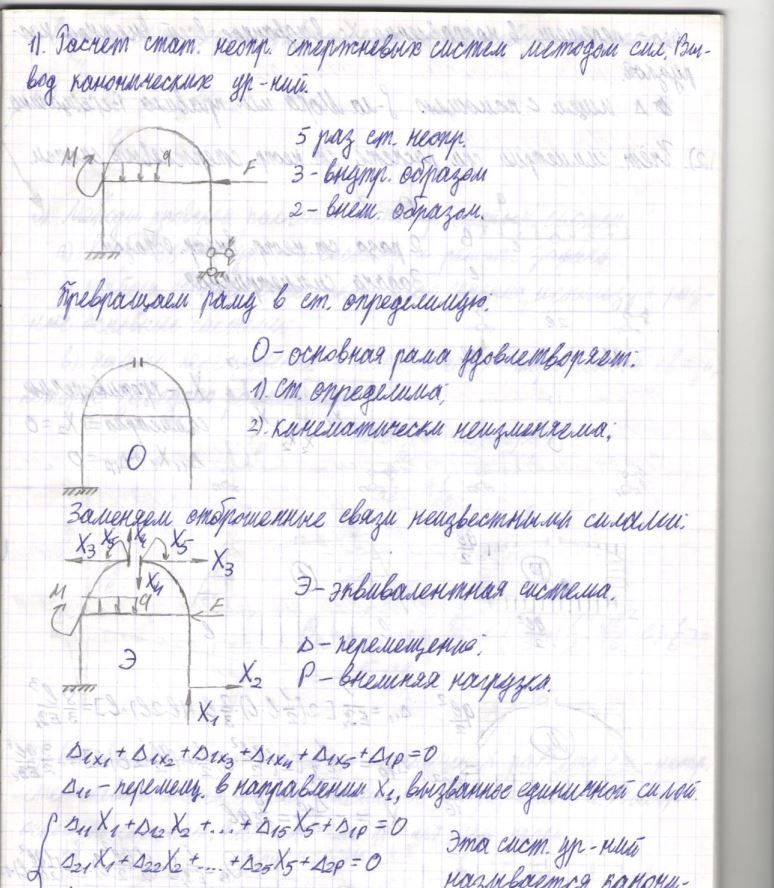 1). Расчет стат. неопр. стержневых систем методом сил. Вы-
вод канонических ур-ний.
M q F
5 раз ст. неопр.
3 - внутр. образом
2 - внеш. образом.
Превращаем раму в ст. определимую.
O - основная рама удовлетворяет:
1). ст. определима;
2). кинематически неизменяема;
O
Заменяем отброшенные связи неизвестными силами:
X₃ X₅ X₄ X₅ X₃
X₄
M q F
Э - эквивалентная система.
Э
Δ - перемещение.
P - внешняя нагрузка.
X₂
X₁
Δ1x₁ + Δ1x₂ + Δ1x₃ + Δ1x₄ + Δ1x₅ + Δ1p = 0
Δ₁₁ - перемещ. в направлении X₁, вызванное единичной силой.
Δ₁₁X₁ + Δ₁₂X₂ + ... + Δ₁₅X₅ + Δ1p = 0
Δ₂₁X₁ + Δ₂₂X₂ + ... + Δ₂₅X₅ + Δ2p = 0
Эта сист. ур-ний
называется канони-